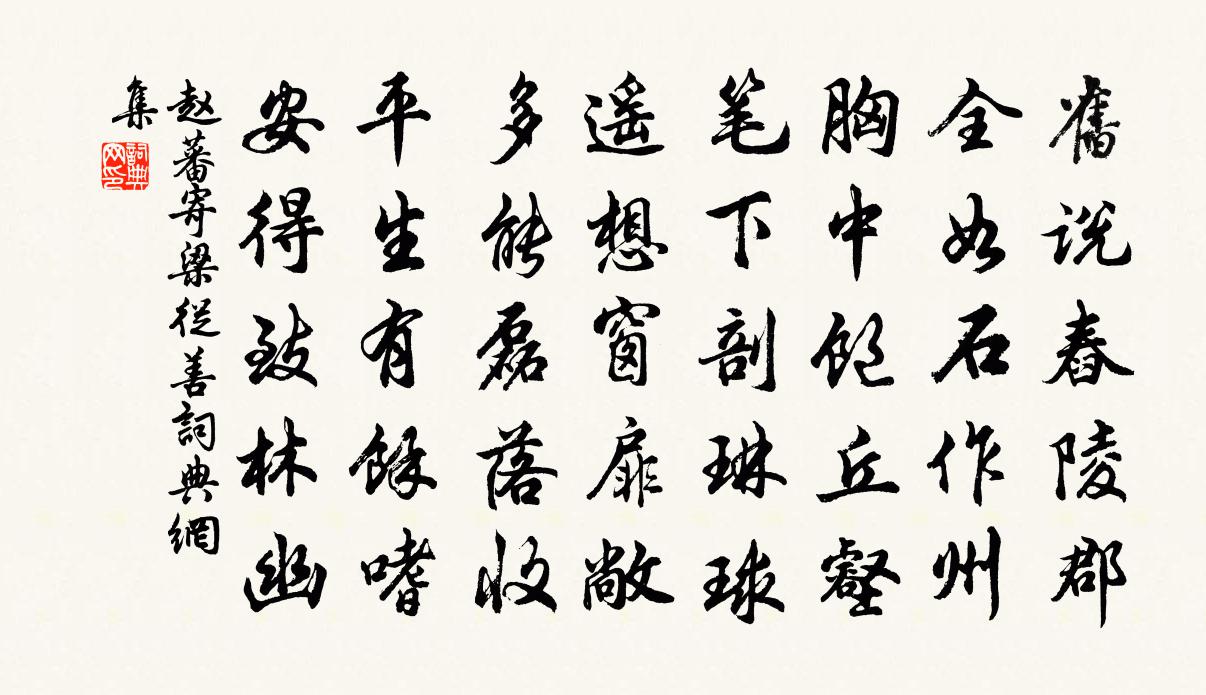 舊说舂陵郡
全如石作州
胸中飽丘壑
笔下剖琳球
遥想窗扉敞
多能磊落收
平生有餘嗜
安得致林幽
赵蕃寄梁從善詞典網
集
詞典
网印